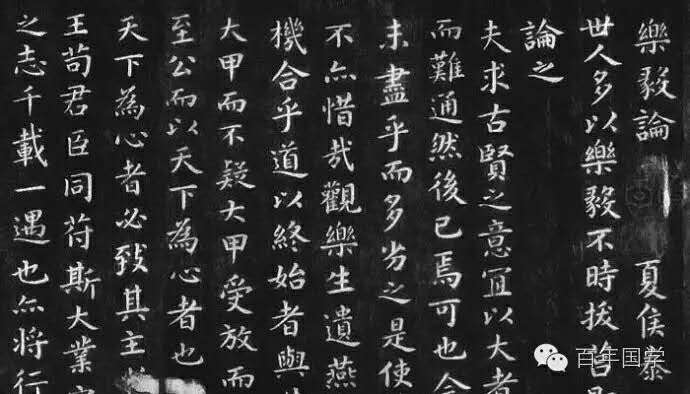 樂毅論 夏侯泰
世人多以樂毅不時拔莒
論之
夫求古賢之意宜以大者
而難通然後已焉可也今
未盡乎而多劣之是使
不亦惜哉觀樂生遺燕
機合乎道以終始者與
大甲而不疑大甲受放而
至公而以天下為心者也
天下為心者必致其主
王苟君臣同符斯大業定
之志千載一遇也亦将行
百年国学